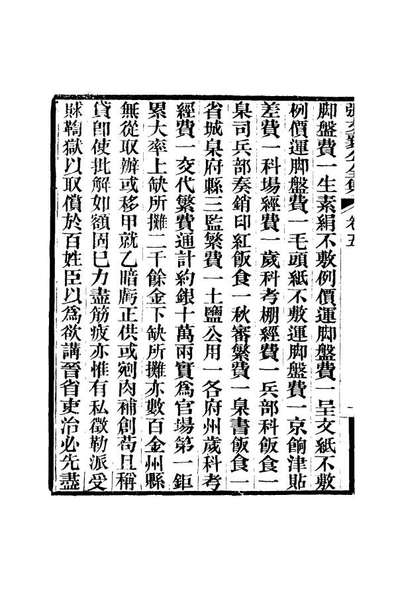 張文襄公全集 卷五
脚盤費一生素絹不敷例價運脚盤費一呈文紙不敷
例價運脚盤費一毛頭紙不敷運脚盤費一京餉津貼
差費一科場經費一歲科考棚經費一兵部科飯食一
臬司兵部奏銷印紅飯食一秋審繁費一臬書飯食一
省城臬府縣三監繁費一土鹽公用一各府州歲科考
經費一交代繁費通計約銀十萬兩實爲官場第一鉅
累大率上缺所攤二千餘金下缺所攤亦數百金州縣
無從取辦或移甲就乙暗虧正供或剜肉補創苟且稱
貸卽使批解如額固已力盡筋疲亦惟有私徵勒派受
賕鞫獄以取償於百姓臣以爲欲講晉省吏治必先盡